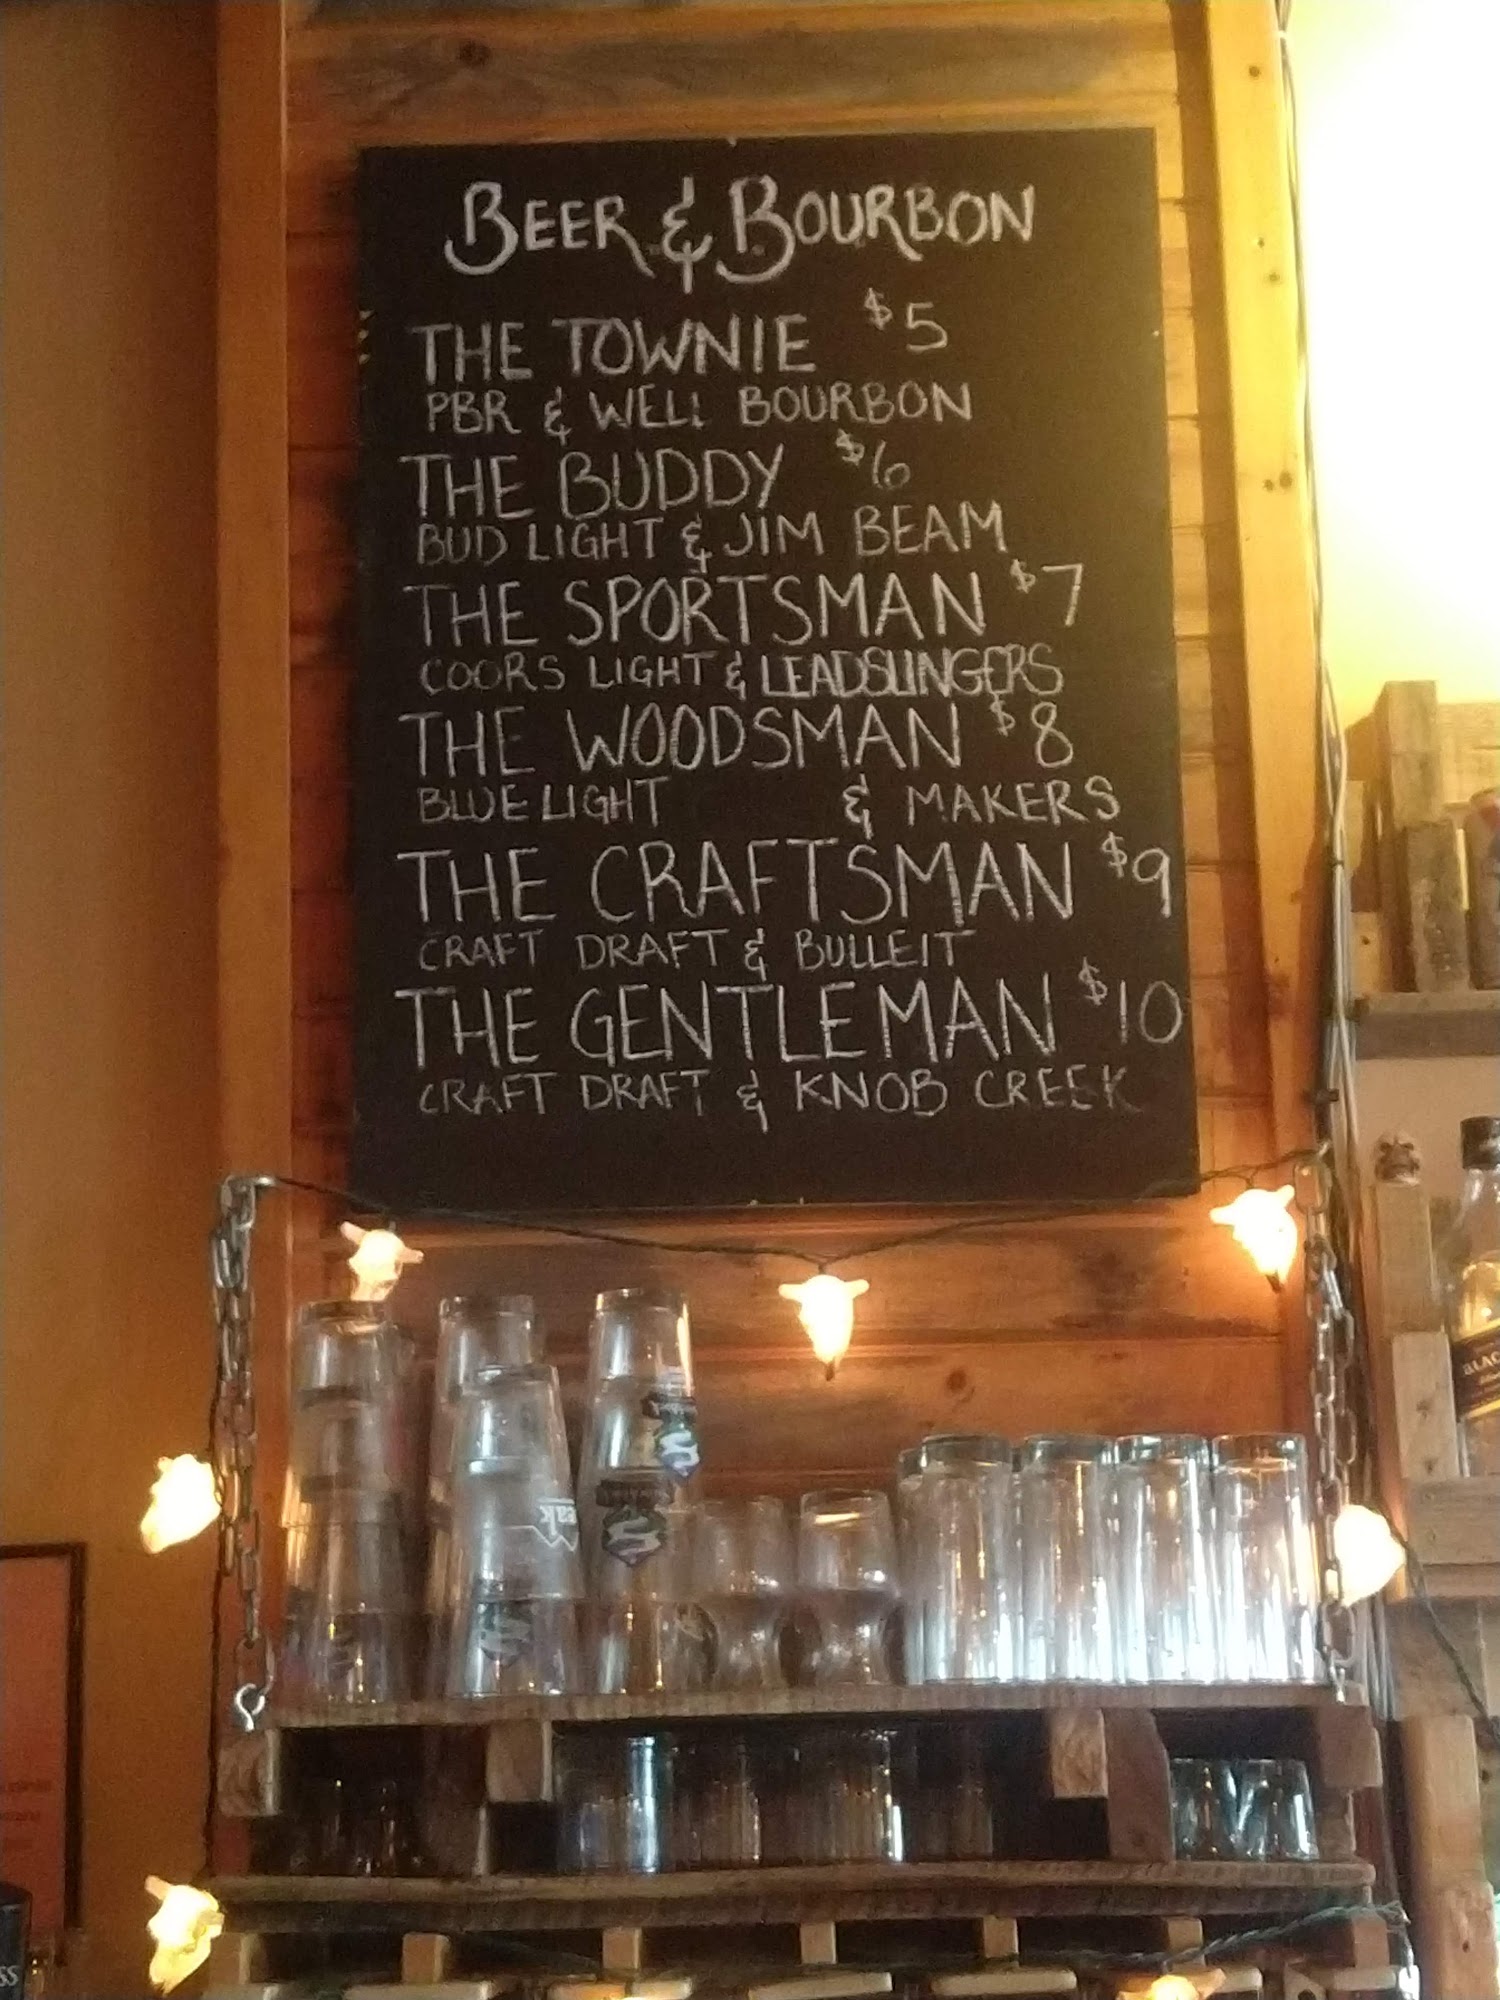 BEER & BOURBON
THE TOWNIE $5
PBR & WELL BOURBON
THE BUDDY $6
BUD LIGHT & JIM BEAM
THE SPORTSMAN $7
COORS LIGHT & LEADSLINGERS
THE WOODSMAN $8
BLUE LIGHT & MAKERS
THE CRAFTSMAN $9
CRAFT DRAFT & BULLEIT
THE GENTLEMAN $10
CRAFT DRAFT & KNOB CREEK